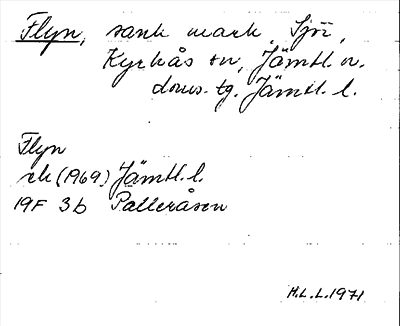 Flyn, sank mark, Sjöi,
Kyrkås sn, Jämtl. n.
doms. tg. Jämtl. l.
Flyn
ek (1969) Jämtl. l.
19F 3b Palleråsen
H.L.L. 1971